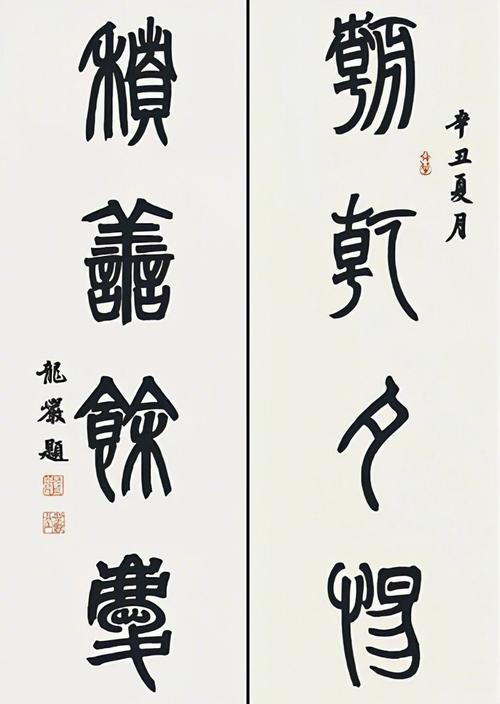 辛丑夏月
朝乾夕惕
積善餘慶
龍巖題